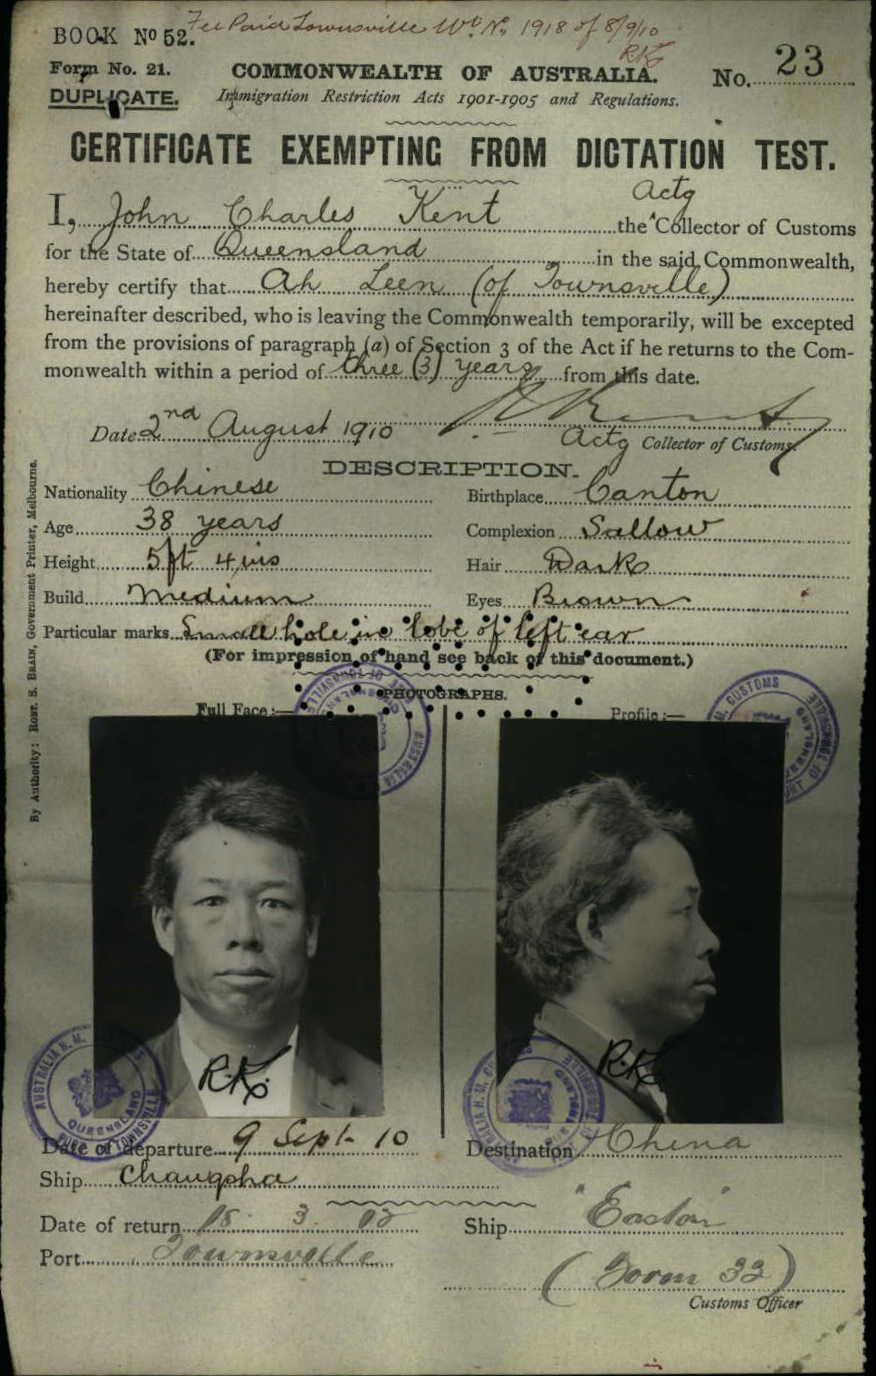 Fee Paid Townsville Wt. No. 1918 of 8/9/10
RK
BOOK No 52.
Form No. 21.
COMMONWEALTH OF AUSTRALIA.
No. 23
DUPLICATE.
Immigration Restriction Acts 1901-1905 and Regulations.
CERTIFICATE EXEMPTING FROM DICTATION TEST.
I, John Charles Kent the Actg Collector of Customs
for the State of Queensland in the said Commonwealth,
hereby certify that Ah Leen (of Townsville)
hereinafter described, who is leaving the Commonwealth temporarily, will be excepted
from the provisions of paragraph (a) of Section 3 of the Act if he returns to the Com-
monwealth within a period of three (3) years from this date.
Date 2nd August 1910
Actg Collector of Customs.
DESCRIPTION.
Nationality Chinese Birthplace Canton
Age 38 years Complexion Sallow
Height 5ft 4ins Hair Dark
Build Medium Eyes Brown
Particular marks Small hole in lobe of left ear
(For impression of hand see back of this document.)
PHOTOGRAPHS.
Full Face:— Profile:—
By Authority: ROBT. S. BRAIN, Government Printer, Melbourne.
R.K. R.K.
AUSTRALIA H.M.
QUEENSLAND
TOWNSVILLE
Date of departure 9 Sept 10 Destination China
Ship Changsha
Date of return 18 3 12 Ship "Easton"
Port Townsville
(Form 32)
Customs Officer